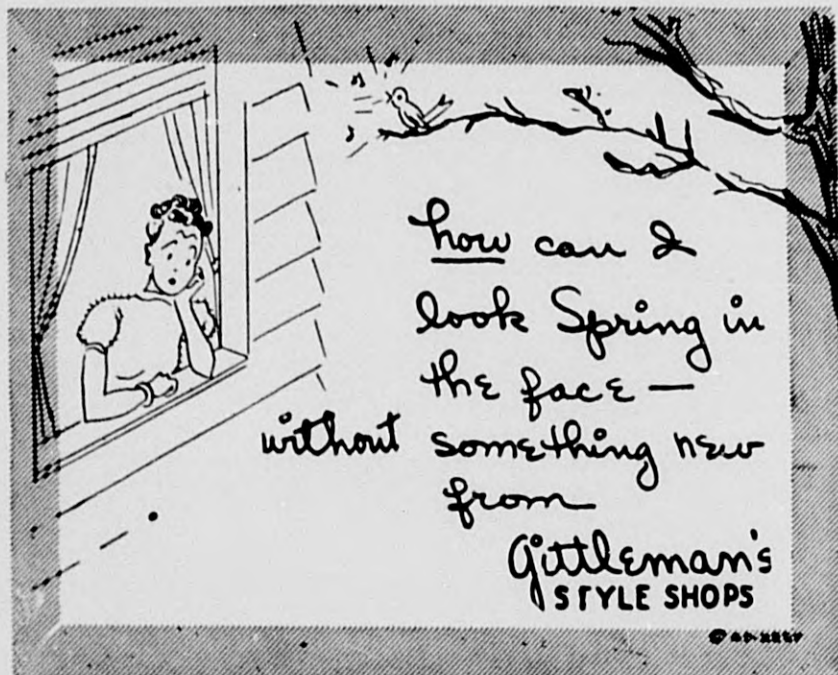 how can I
look Spring in
the face —
without something new
from
Gittleman's
STYLE SHOPS